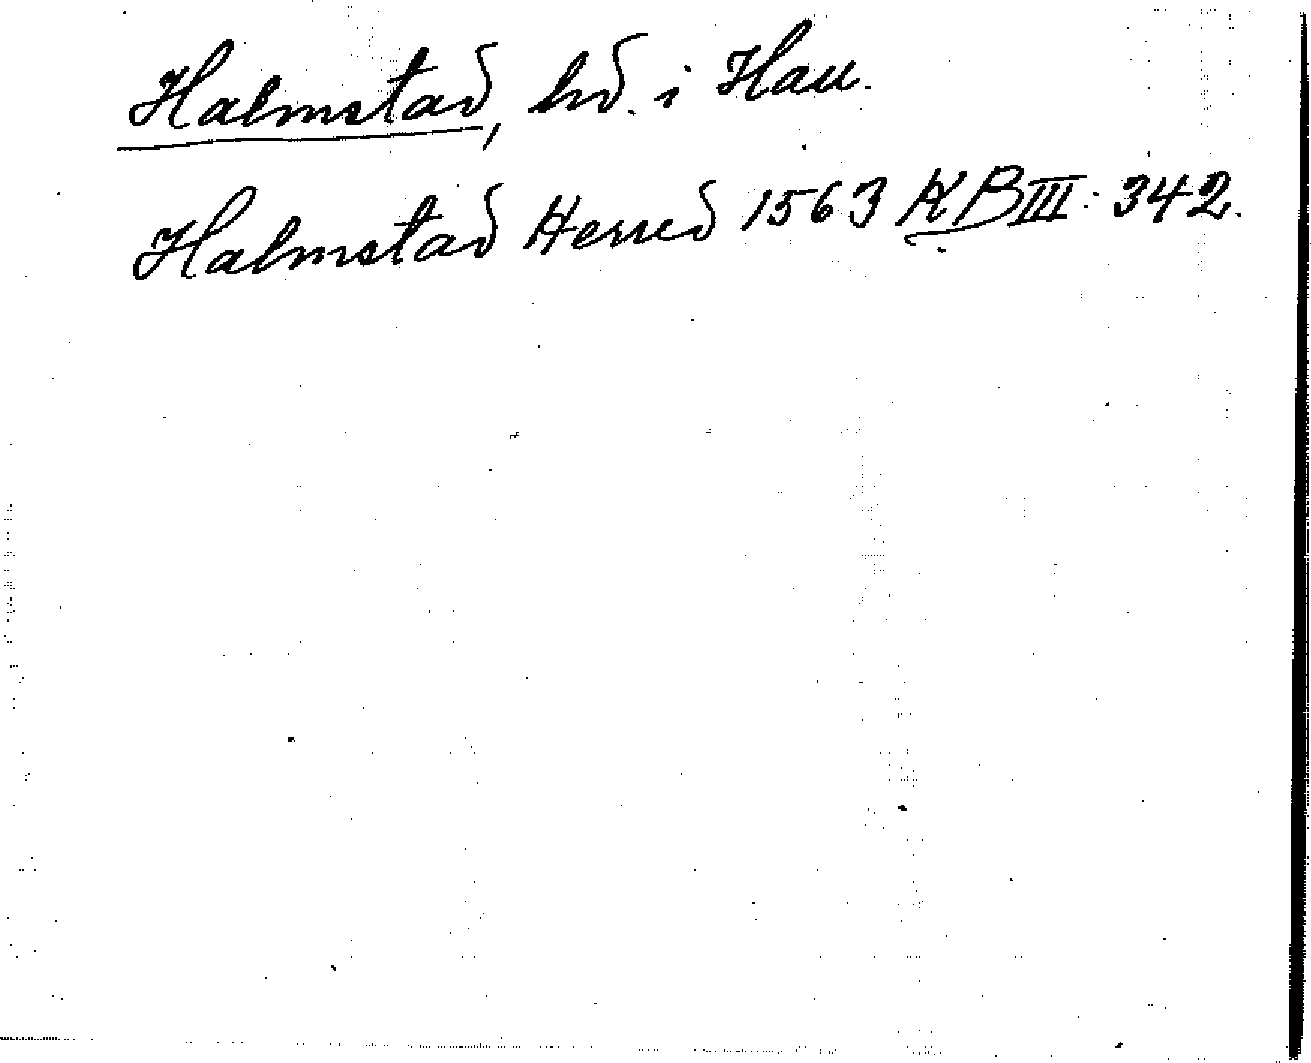 Halmstad, hd. i Hall.
Halmstad Herred 1563 KB III: 342.